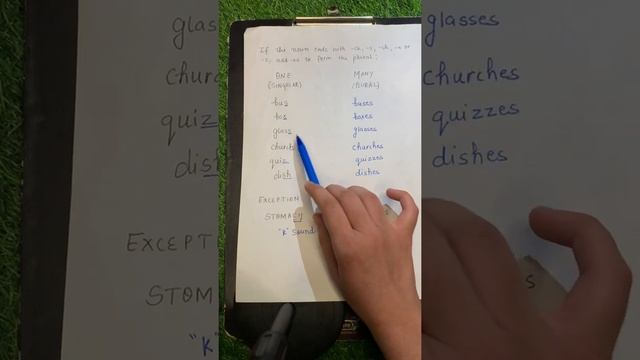 If the noun ends with -ch, -s, -sh, -x or
-z, add -es to form the plural:
ONE MANY
(SINGULAR) (PLURAL)
bus buses
box boxes
glass glasses
church churches
quiz quizzes
dish dishes
EXCEPTION
STOMACH
"K" sound